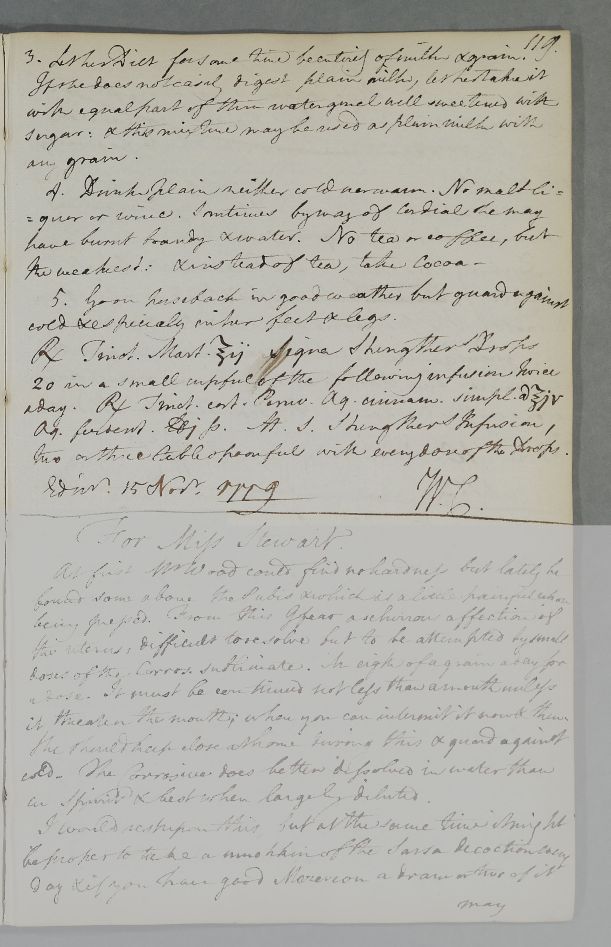 119.
3. Let her Diet for some time be entirely of milk & grain.
If she does not easily digest plain milk, let her take it
with equal part of thin watergruel well sweetened with
sugar: & this mixture may be used as plain milk with
any grain.
4. Drink plain neither cold nor warm. No malt li=
=quor or wine. Sometimes by way of Cordial she may
have burnt brandy & water. No tea or coffee, but
the weakest: & instead of tea, take Cocoa -
5. Go on horseback in good weather but guard against
cold & especially in her feet & legs.
℞ Tinct. Mart. ℥ij Signa Strengther Drops
20 in a small cupful of the following infusion twice
a day. ℞ Tinct. cort. Peruv. Aq. cinnam. simpl. a ℥jv
Aq. fervent. ℔j ß. M. S. Strengther Infusion,
two or three tablespoonful with every dose of the Drops.
Edinr. 15 Novr. 1779 W.C.
For Miss Stewart.
At first Mr Wood could find no hardness but lately he
found some above the Pubis & which is a little painful when
being pressed. From this I fear a schirrous affection of
the uterus, difficult to resolve but to be attempted by small
doses of the Corros. sublimate. An eighth of a grain a day for
a dose. It must be continued not less than a month unless
it threaten the mouth; when you can intermit it now & then.
She should keep close at home during this & guard against
cold - The Corrosive does better dissolved in water than
in spirits & best when largely diluted.
I would rest upon this, but at the same time it might
be proper to take a mutchkin of the Sarsa decoction every
day & if you have good Mezereon a dram or two of it
may